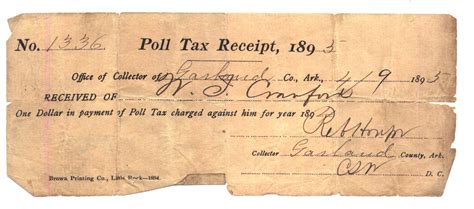 No. 1336 Poll Tax Receipt, 1895
Office of Collector of Garland Co., Ark., 4/9 1895
RECEIVED OF W. T. Crawford
One Dollar in payment of Poll Tax charged against him for year 189
Collector Garland County, Ark.
Brown Printing Co., Little Rock—1894. D. C.